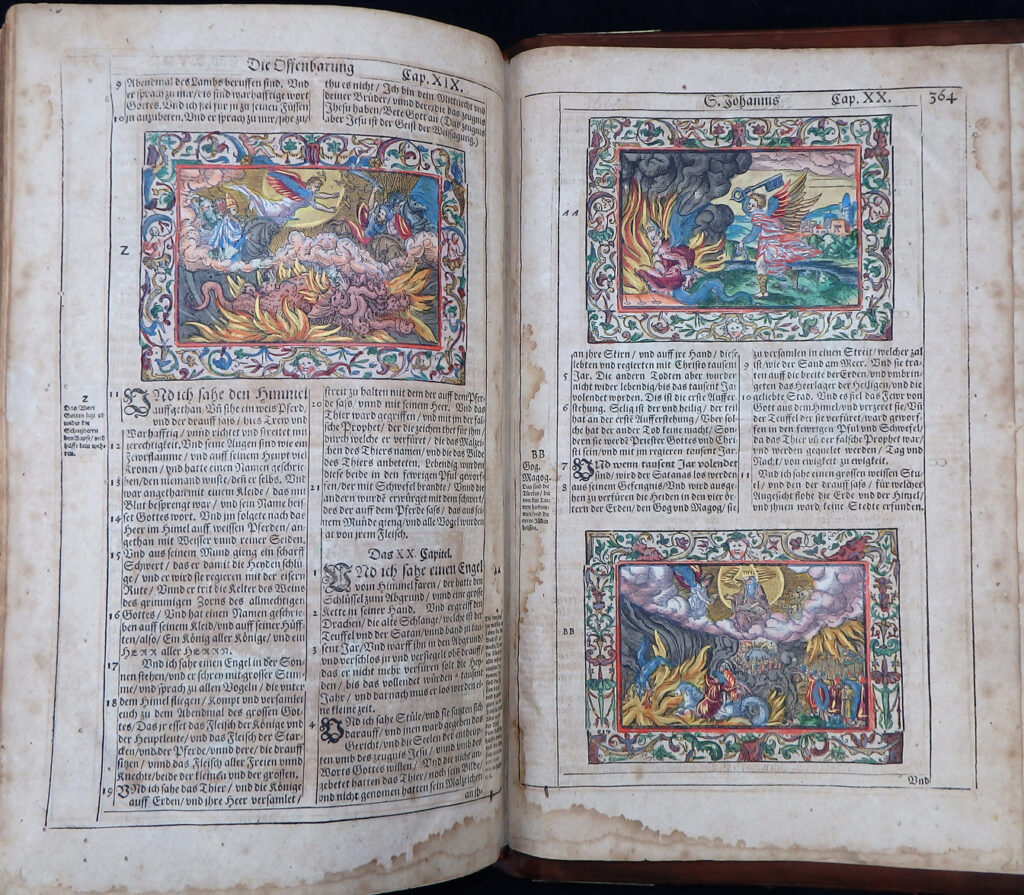 Die Offenbarung
Cap. XIX.
9 Abendmal des Lambs beruffen sind. Vnd
er sprach zu mir/ dis sind warhafftige wort
Gottes. Vnd ich fiel für jn zu seinen Füssen
10 jn anzubeten. Vnd er sprach zu mir/ sihe zu/
thu es nicht/ Ich bin dein Mitknecht vnd
deiner Brüder/ vnnd dere/ die das zeugnis
Jhesu haben/ Bete Gott an (Das zeugnis
aber Jesu ist der Geist der Weissagung.)
Z
Z
Das Wort
Gottes ligt ob
11 VNd ich sahe den Himmel
auffgethan. Vñ sihe ein weis Pferd/
vnd der drauff sass/ hies Trew vnd
Warhafftig/ vnnd richtet vnd streitet mit
12 gerechtigkeit. Vnd seine Augen sind wie ein
Fewrflamme/ vnd auff seinem Heupt viel
Kronen/ vnd hatte einen Namen geschrie-
13 ben/ den niemand wuste/ den er selbs. Vnd
war angethan mit einem Kleide/ das mit
Blut besprengt war/ vnd sein Name heisst
14 Gottes wort. Vnd jm folgete nach das
Heer im Himel auff weissen Pferden/ an-
gethan mit Weisser vnnd reiner Seiden.
15 Vnd aus seinem Mund gieng ein scharff
Schwert/ das er damit die Heyden schlü-
ge/ vnd er wird sie regieren mit der eisern
Rute/ Vnnd er trit die Kelter des Weins
des grimmigen Zorns des allmechtigen
16 Gottes/ Vnd hat einen Namen geschrie-
ben auff seinem Kleid/ vnd auff seiner Hüff-
ten/ also/ Ein König aller Könige/ vnd ein
HERR aller HERRN.
17 Vnd ich sahe einen Engel in der Son-
nen stehen/ vnd er schrey mit grosser Stim-
me/ vnd sprach zu allen Vogeln/ die vnter
18 dem Himel fliegen/ Kompt vnd versamlet
euch zu dem Abendmal des grossen Got-
tes/ Das jr esset das Fleisch der Könige vnd
der Heuptleute/ vnd das Fleisch der Star-
cken/ vnd der Pferde/ vnnd dere/ die drauff
sitzen/ vnnd das Fleisch aller Freien vnnd
Knechte/ beide der kleinen vnd der grossen.
19 VNd ich sahe das Thier/ vnd die Könige
auff Erden/ vnd jhre Heer versamlet/
streit zu halten mit dem der auff dem Pfer-
20 de sass/ vnnd mit seinem Heer. Vnd das
Thier ward gegriffen/ vnd mit jm der fal-
sche Prophet/ der die zeichen thet für jhm/
durch welche er verfüret/ die das Malzei-
chen des Thiers namen/ vnd die das Bilde
des Thiers anbeten. Lebendig wurden
diese beide in den fewrigen Pful geworf-
21 fen/ der mit Schwefel brandte/ Vnnd die
andern wurdẽ erwürget mit dem schwert/
des der auff dem Pferde sass/ das aus sei-
nem Munde gieng/ vnd alle Vogel wurden
sat von jrem Fleisch.
Das XX. Capitel.
1 VNd ich sahe einen Engel
vom Himmel faren/ der hatte den
Schlüssel zum Abgrund/ vnd eine grosse
2 Kette in seiner Hand. Vnd ergreiff den
Drachen/ die alte Schlange/ welche ist der
Teuffel vnd der Satan/ vnnd band jn tau-
3 sent Jar/ Vnd warff jhn in den Abgrund/
vnd verschlos jn vnd versiegelt obẽ drauff/
das er nicht mehr verfüren solt die Hey-
den/ bis das vollendet würden tausend
Jahr/ vnd darnach mus er los werden ei-
ne kleine zeit.
4 VNd ich sahe Stüle/ vnd sie satzten sich
darauff/ vnd jnen ward gegeben das
Gericht/ vnd die Seelen der entheup-
ten vmb des zeugnis Jesu/ vnnd vmb des
Worts Gottes willen/ Vnd die nicht an-
gebetet hatten das Thier/ noch sein Bilde/
vnd nicht genomen hatten sein Malzeichen
an jh-
AA
S. Johannis
Cap. XX.
364
AA
an jhre Stirn/ vnd auff jre Hand/ diese
lebten vnd regierten mit Christo tausent
5 Jar. Die andern Todten aber wurden
nicht wider lebendig/ bis das tausent Jar
volendet worden. Dis ist die erste Auffer-
6 stehung. Selig ist der vnd heilig/ der teil
hat an der erstẽ Aufferstehung/ Vber sol-
che hat der ander Tod keine macht/ Son-
dern sie werdẽ Priester Gottes vnd Chri-
sti sein/ vnd mit jm regieren tausent Jar.
7 VNd wenn tausent Jar volendet
sind/ wird der Satanas los werden
8 aus seinem Gefengnis/ Vnd wird ausge-
hen zu verfüren die Heiden in den vier ör-
tern der Erden/ den Gog vnd Magog/ sie
BB
Gog.
Magog.
Das sind die
Türcken/ die
von den Tat-
tern herkom-
men/ vnd die
roten Jüden
heissen.
zu versamlen in einen Streit/ welcher zal
9 ist/ wie der Sand am Meer. Vnd sie tra-
ten auff die breite der Erden/ vnd vmbrin-
geten das Heerlager der Heiligen/ vnd die
10 geliebte Stad. Vnd es fiel das Fewr von
Gott aus dem Himel/ vnd verzeret sie/ Vñ
der Teuffel der sie verfüret/ ward geworf-
fen in den fewrigen Pful vnd Schwefel/
da das Thier vñ der falsche Prophet war/
vnd werden gequelet werden/ Tag vnd
Nacht/ von ewigkeit zu ewigkeit.
11 Vnd ich sahe einen grossen weissen Stu-
el/ vnd den der drauff sass/ für welches
Angesicht flohe die Erde vnd der Himel/
vnd jhnen ward keine Stedte erfunden.
BB
Vnd